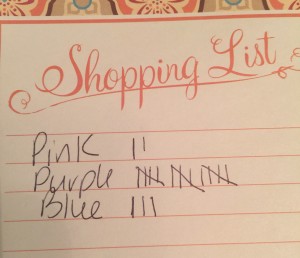 Shopping List
Pink ||
Purple 卌 卌 卌
Blue |||